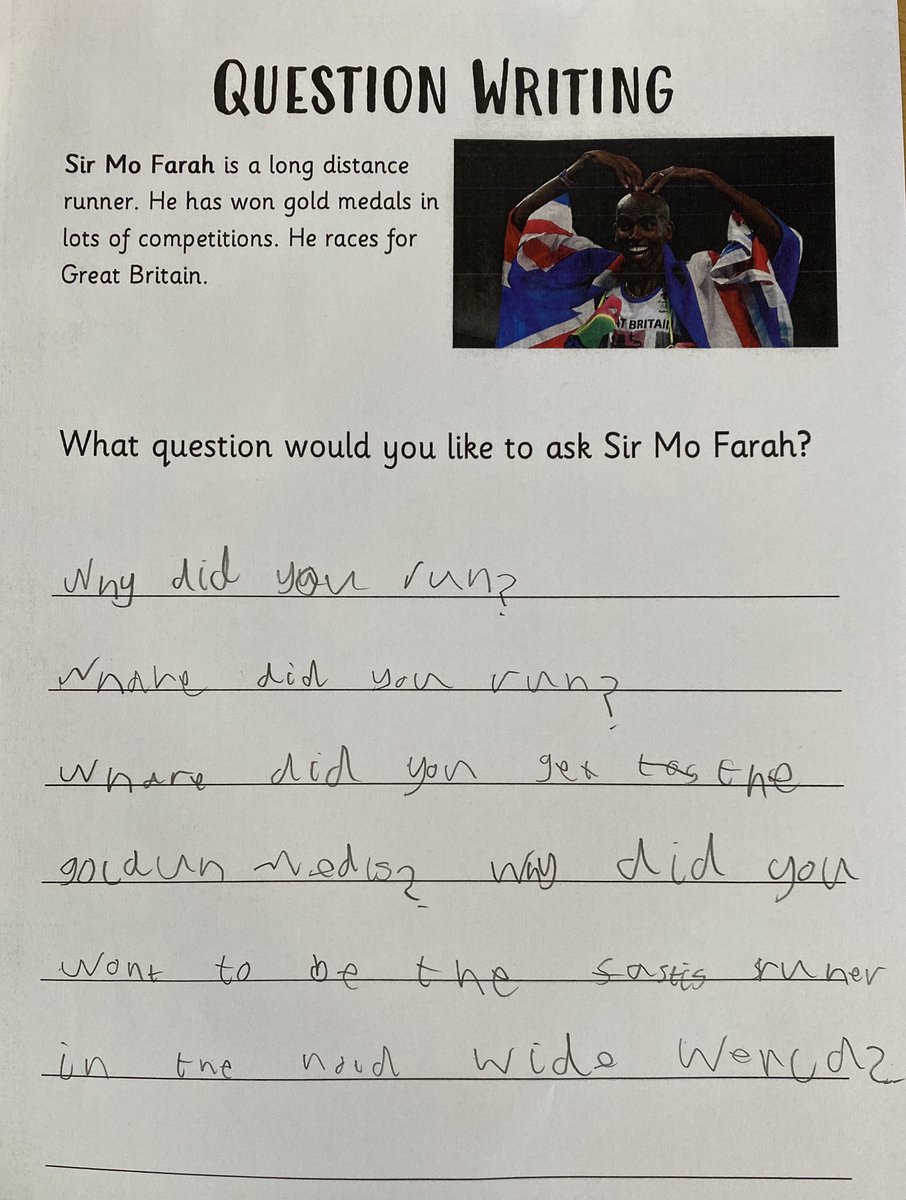 QUESTION WRITING
Sir Mo Farah is a long distance
runner. He has won gold medals in
lots of competitions. He races for
Great Britain.
AT BRITAIN
What question would you like to ask Sir Mo Farah?
Why did you run?
Whare did you run?
Whare did you get the
goldun medls? why did you
Wont to be the fastis runer
in the wide Wercd?